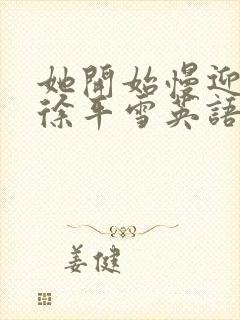 她開始慢迎
徐平雪英語
姜健